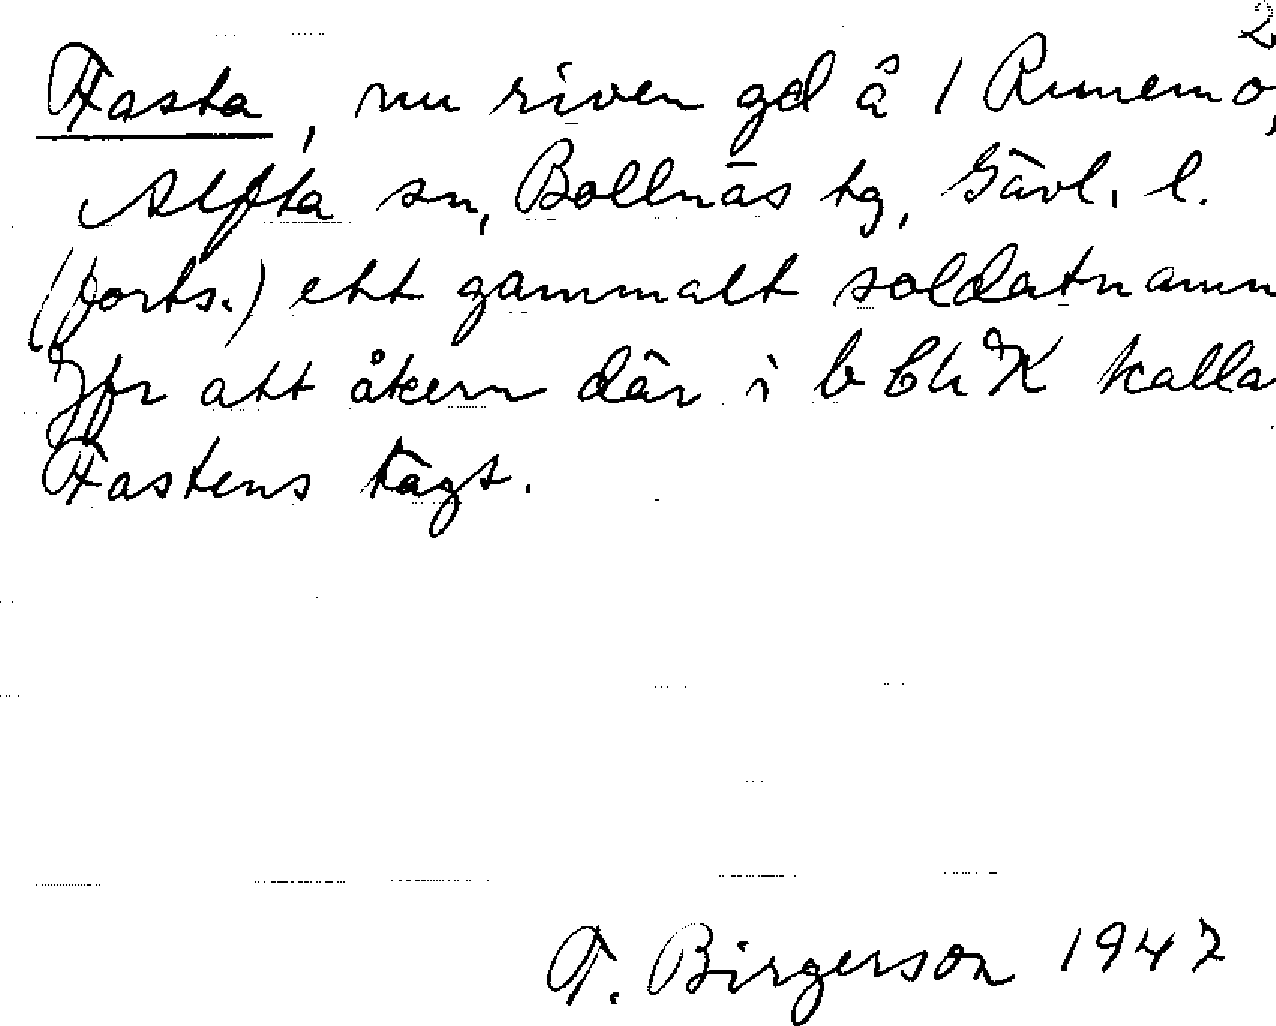 2
Fasta, nu riven gd å 1 Runemo,
Alfta sn, Bollnäs tg, Gävl. l.
(forts.) ett gammalt soldatnamn
Jfr att åkern där i kalla
Fastens tägt.
T. Birgerson 1947